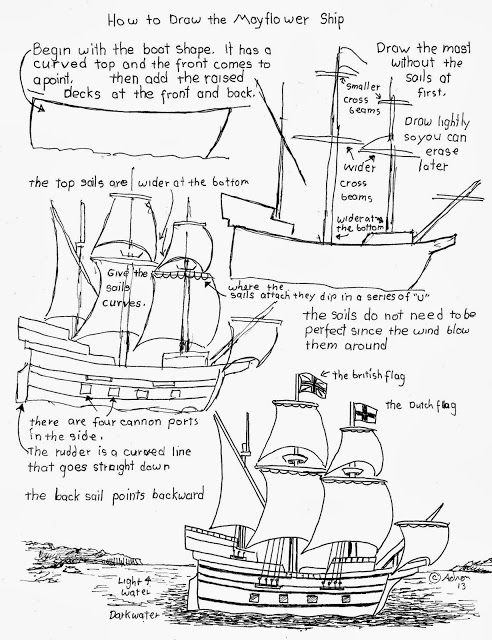 How to Draw the Mayflower Ship
Begin with the boat shape. It has a
curved top and the front comes to
a point. then add the raised
decks at the front and back.
Draw the mast
without the
sails at
first.
Draw lightly
so you can
erase
later
smaller
cross
beams
wider
cross
beams
wider at
the bottom
the top sails are wider at the bottom
Give the
sails
curves.
where the
sails attach they dip in a series of "U"
the sails do not need to be
perfect since the wind blow
them around
there are four cannon ports
in the side.
The rudder is a curved line
that goes straight down
the back sail points backward
the british flag
the Dutch flag
Light
water
Dark water
© Adron
13